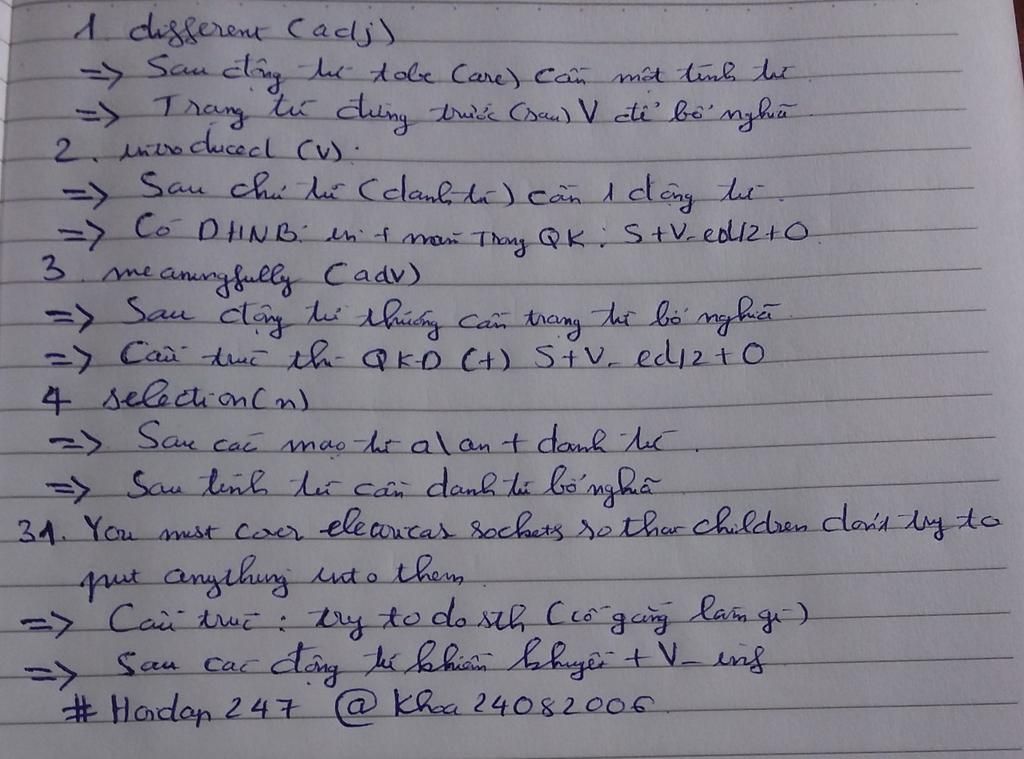 1 different (adj)
=> Sau động từ tobe (are) cần một tính từ.
=> Trạng từ đứng trước (sau) V để bổ nghĩa
2. introduced (v).
=> Sau chủ từ (danh từ) cần 1 động từ.
=> Có DHNB: in + năm Trong QK: S+V-ed/2+O
3 meaningfully (adv)
=> Sau động từ thường cần trạng từ bổ nghĩa
=> Cấu trúc thì QKĐ (+) S+V-ed/2+O
4 selection(n)
=> Sau các mạo từ a\an + danh từ.
=> Sau tính từ cần danh từ bổ nghĩa
31. You must cover electrical sockets so that children don't try to
put anything into them
=> Cấu trúc: try to do sth (cố gắng làm gì)
=> Sau các động từ khiếm khuyết + V-inf
# Hoidap 247 @ Khoa 24082006